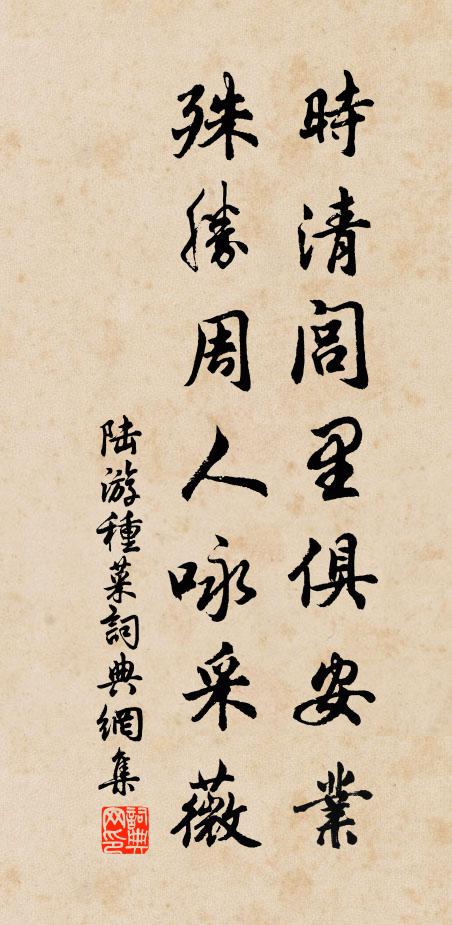 時清閭里俱安業
殊勝周人咏采薇
陸游種菜詞典網集
詞典网印